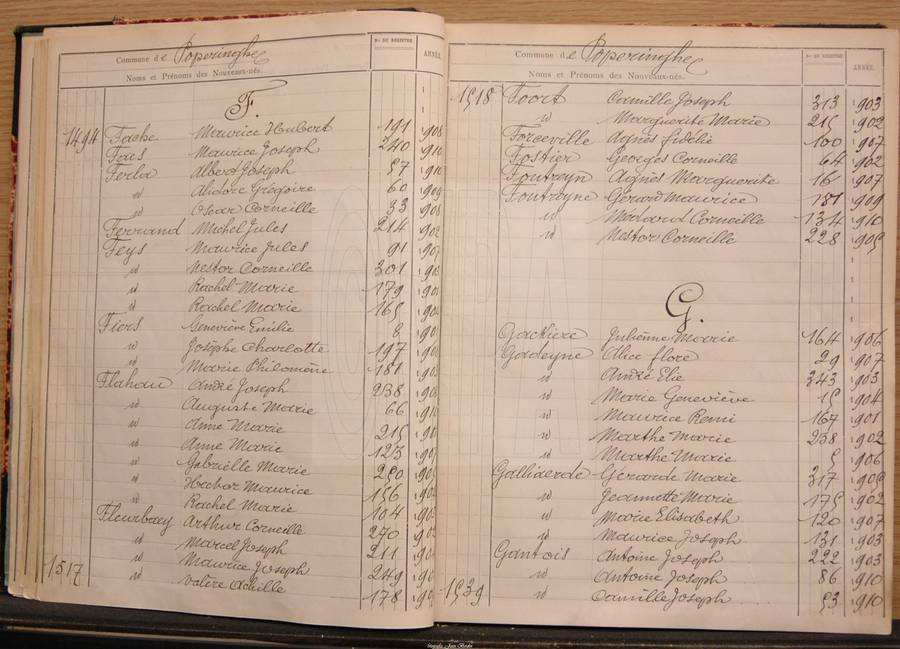 Commune de Poperinghe
Nos DU REGISTRE
ANNÉE
Noms et Prénoms des Nouveaux-nés.
F.
1494 Fache Maurice Hubert 191 1908
Faes Maurice Joseph 240 1910
Ferla Albert Joseph 57 1910
id Alidore Grégoire 60 1909
id Oscar Corneille 33 1908
Ferrand Michel Jules 214 1902
Feys Maurice Jules 91 190
id Nestor Corneille 301 190
id Rachel Marie 179 190
id Rachel Marie 165 190
Fiers Geneviève Emilie 8 190
id Josèphe Charlotte 197 190
id Marie Philomène 181 190
Flahau André Joseph 238 190
id Auguste Marie 66 1910
id Anne Marie 215 19
id Anne Marie 123 190
id Gabrielle Marie 250 190
id Hector Maurice 156 190
id Rachel Marie 104 190
Fleurbaey Arthur Corneille 270 190
id Marcel Joseph 211 190
id Maurice Joseph 249 190
1517 id Valère Achille 178 190
Commune de Poperinghe
Nos DU REGISTRE
ANNÉE.
Noms et Prénoms des Nouveaux-nés.
1518 Foort Camille Joseph 313 1903
id Marguerite Marie 215 1902
Forceville Agnès Fidélie 100 1907
Fostier Georges Corneille 64 1902
Foutreyn Agnès Marguerite 16 1907
Foutreyne Gérard Maurice 131 1909
id Médard Corneille 134 1910
id Nestor Corneille 228 1905
G.
Gactiere Julienne Marie 164 1906
Gadeyne Alice Flore 29 1907
id André Elie 343 1903
id Marie Geneviève 15 1904
id Maurice Remi 167 1901
id Marthe Marie 238 1902
id Marthe Marie 5 1906
Galliaerde Gérarde Marie 317 1905
id Jeannette Marie 175 1902
id Marie Elisabeth 120 1907
id Maurice Joseph 131 1903
Gantois Antoine Joseph 222 1903
id Antoine Joseph 86 1910
1539 id Camille Joseph 53 1910